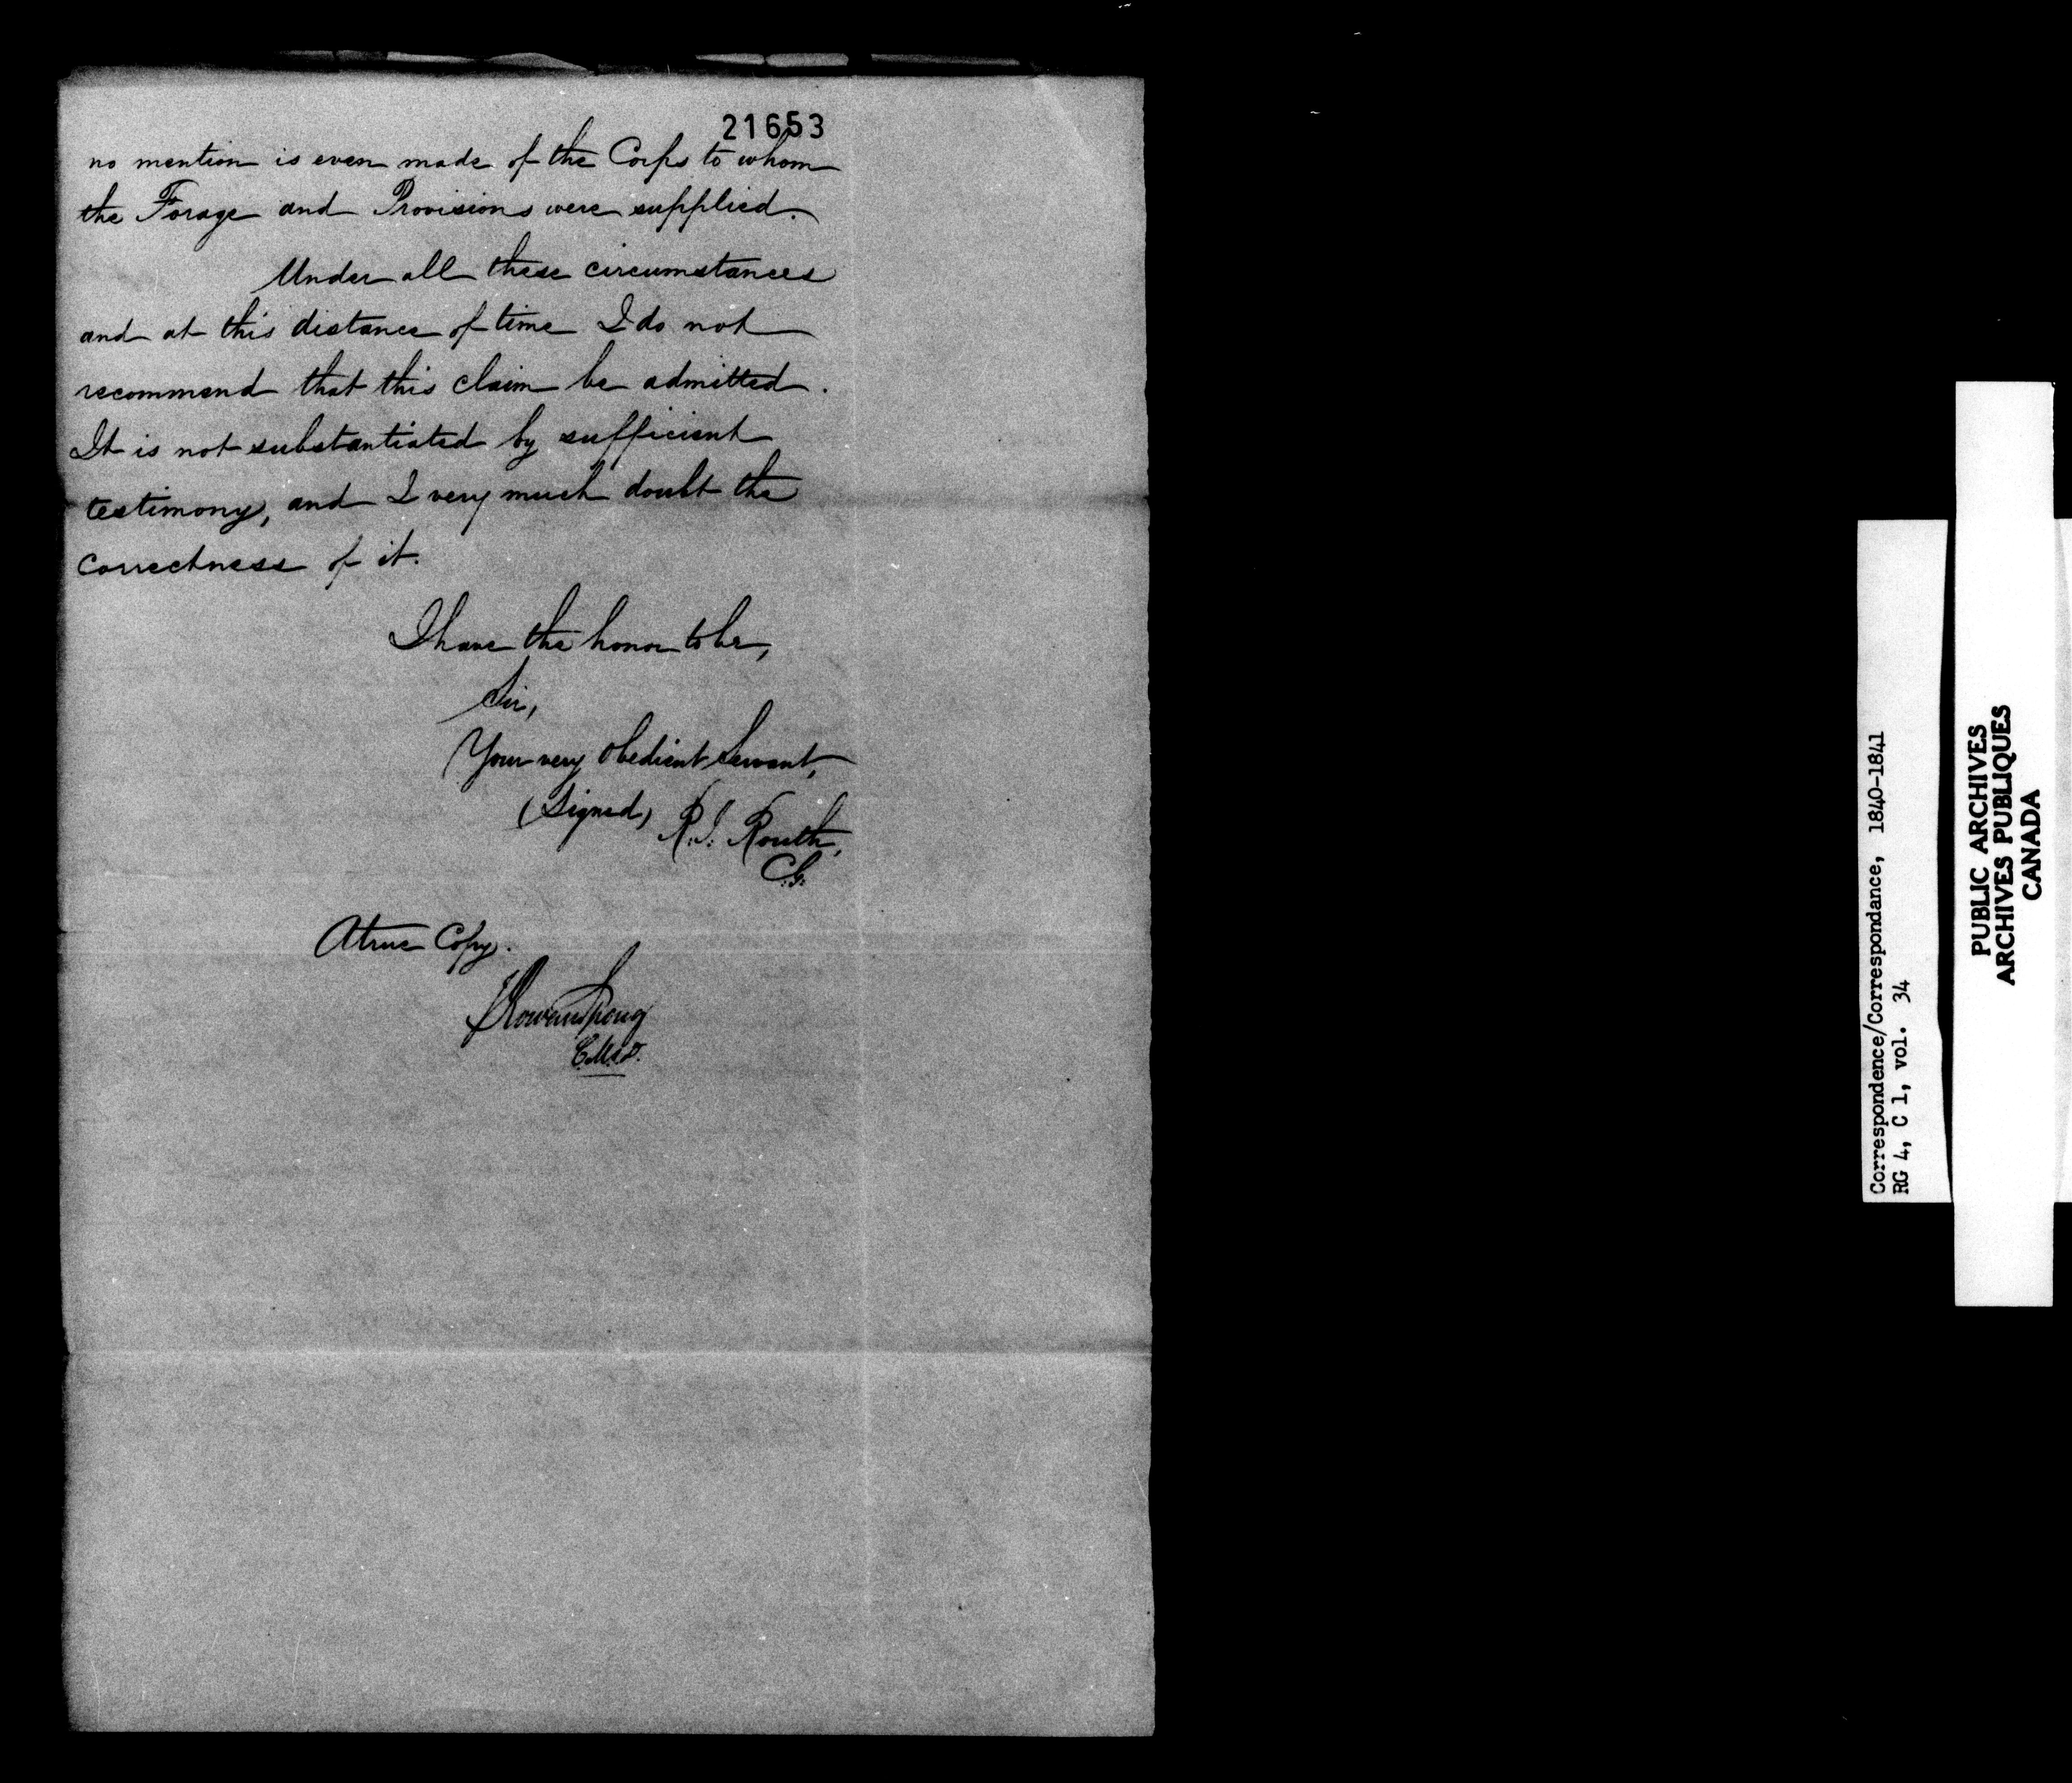 21653
no mention is even made of the Corps to whom
the Forage and Provisions were supplied.
Under all these circumstances
and at this distance of time I do not
recommend that this claim be admitted.
It is not substantiated by sufficient
testimony, and I very much doubt the
correctness of it.
I have the honor to be,
Sir,
Your very obedient Servant,
(Signed) R. I. Routh,
C.G.
A true Copy.
Correspondence/Correspondance, 1840-1841
RG 4, C 1, vol. 34
PUBLIC ARCHIVES
ARCHIVES PUBLIQUES
CANADA